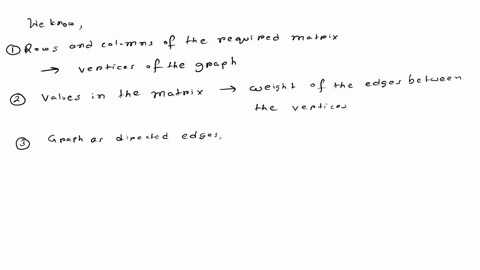 We know,
① Rows and columns of the required matrix
→ vertices of the graph
② Values in the matrix → weight of the edges between
the vertices
③ Graph as directed edges,